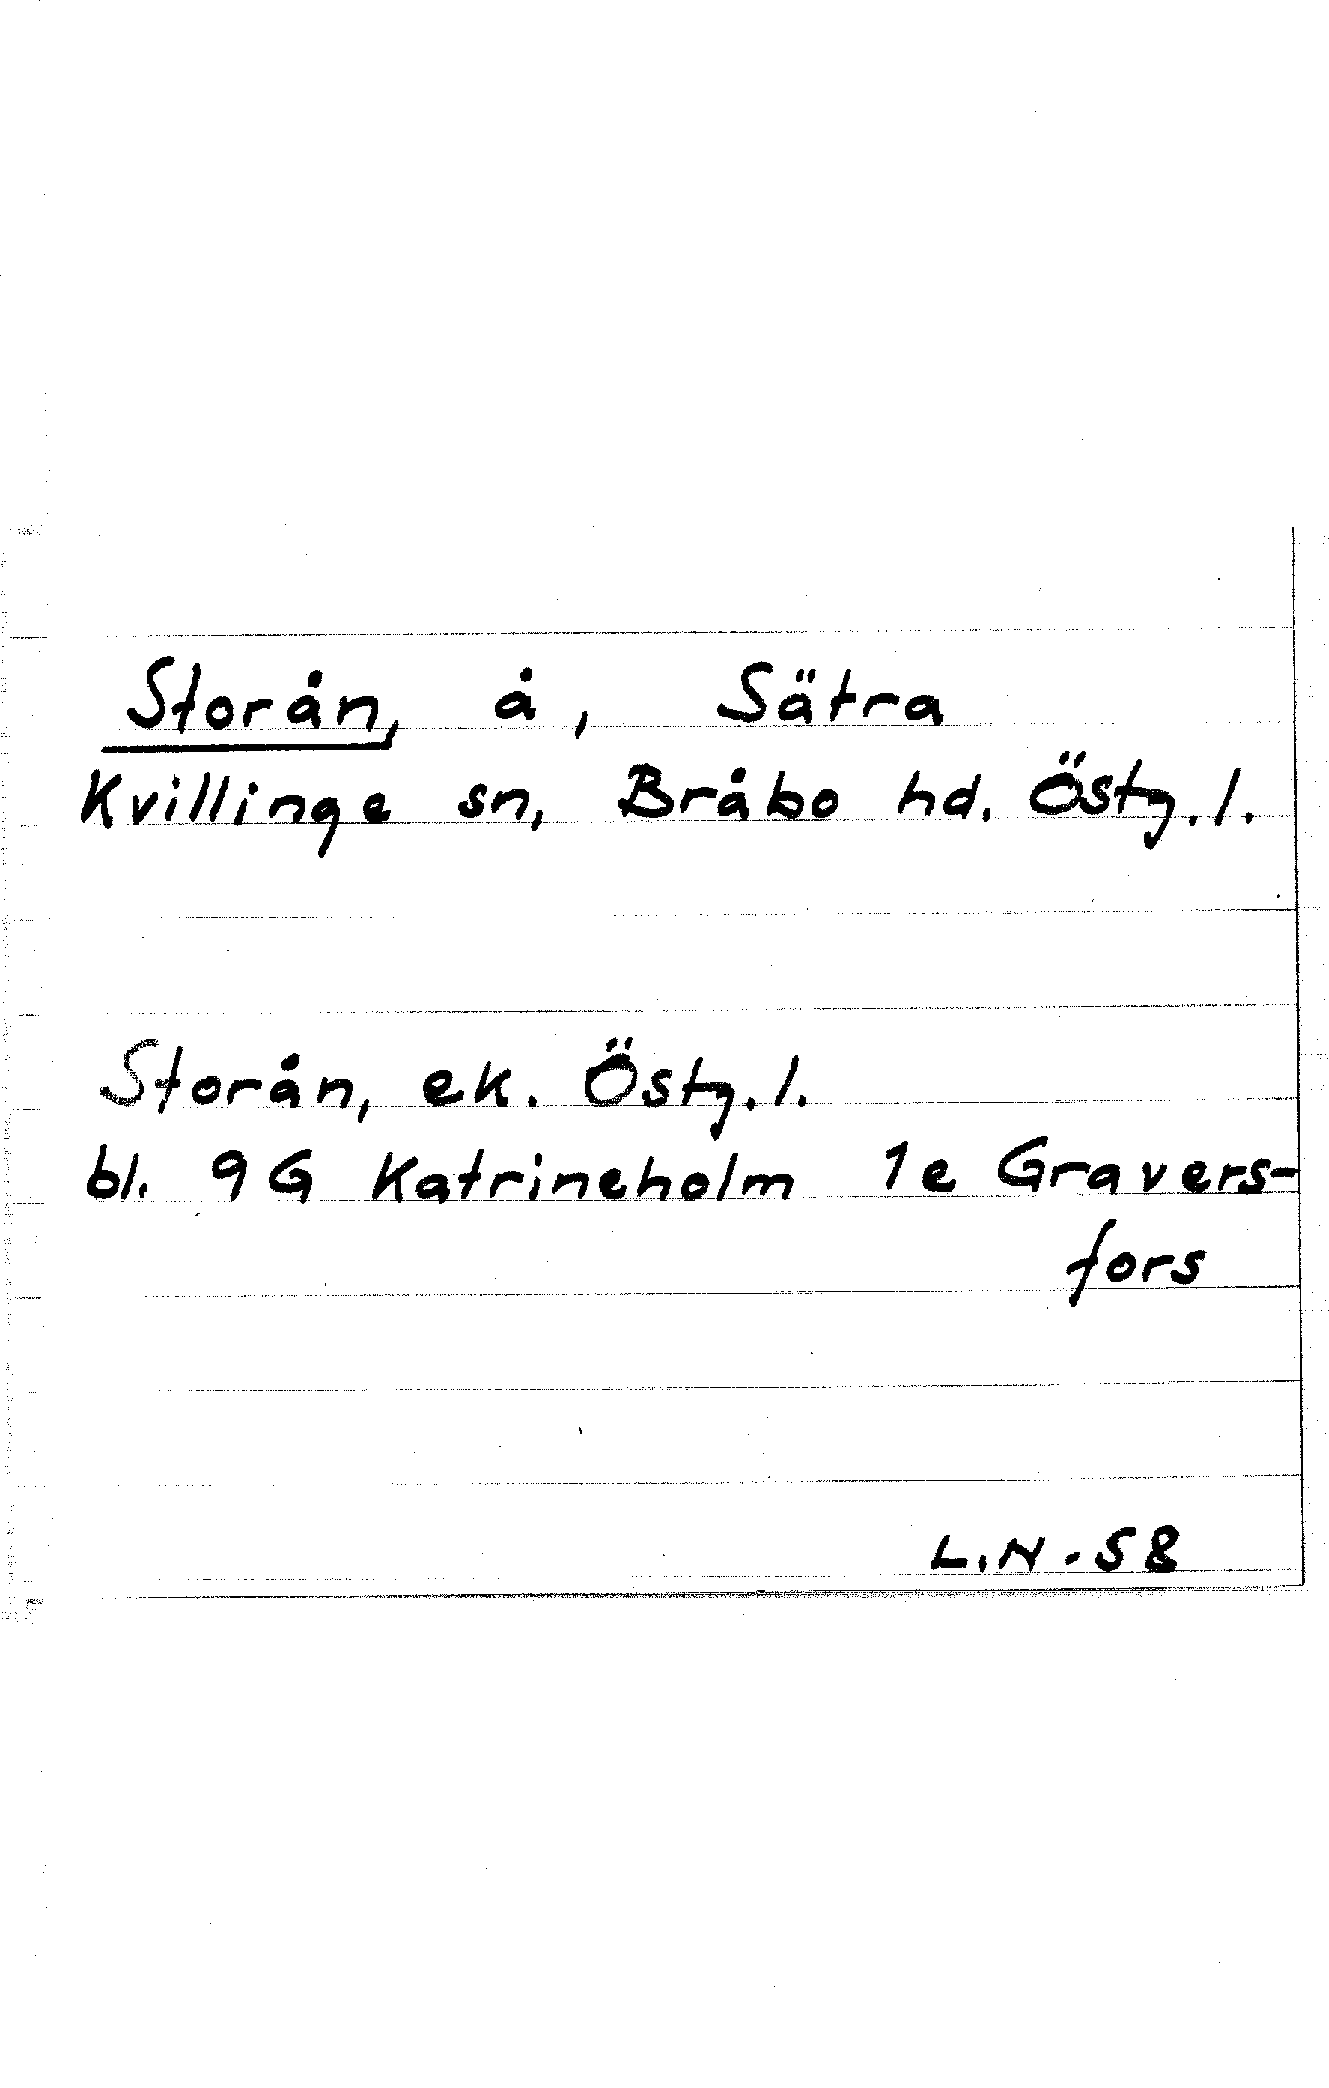 Storån, å, Sätra
Kvillinge sn, Bråbo hd. Östg.l.
Storån, ek. Östg.l.
bl. 9G Katrineholm 1e Gravers-
fors
L.N.58